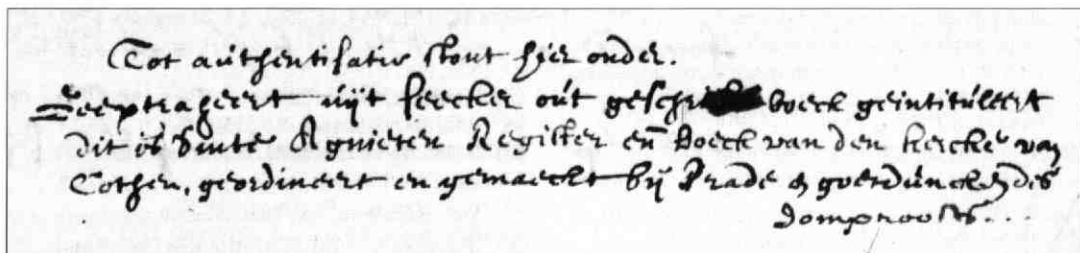 Tot authentisatie stont hier onder.
Geextraheert uijt seecker out geschr boeck geintituleert
dit is Sinte Agnieten Register en̄ Boeck van den kercke van
Cothen, geordineert en gemaeckt bij Rade en goetduncken des
domproosts...